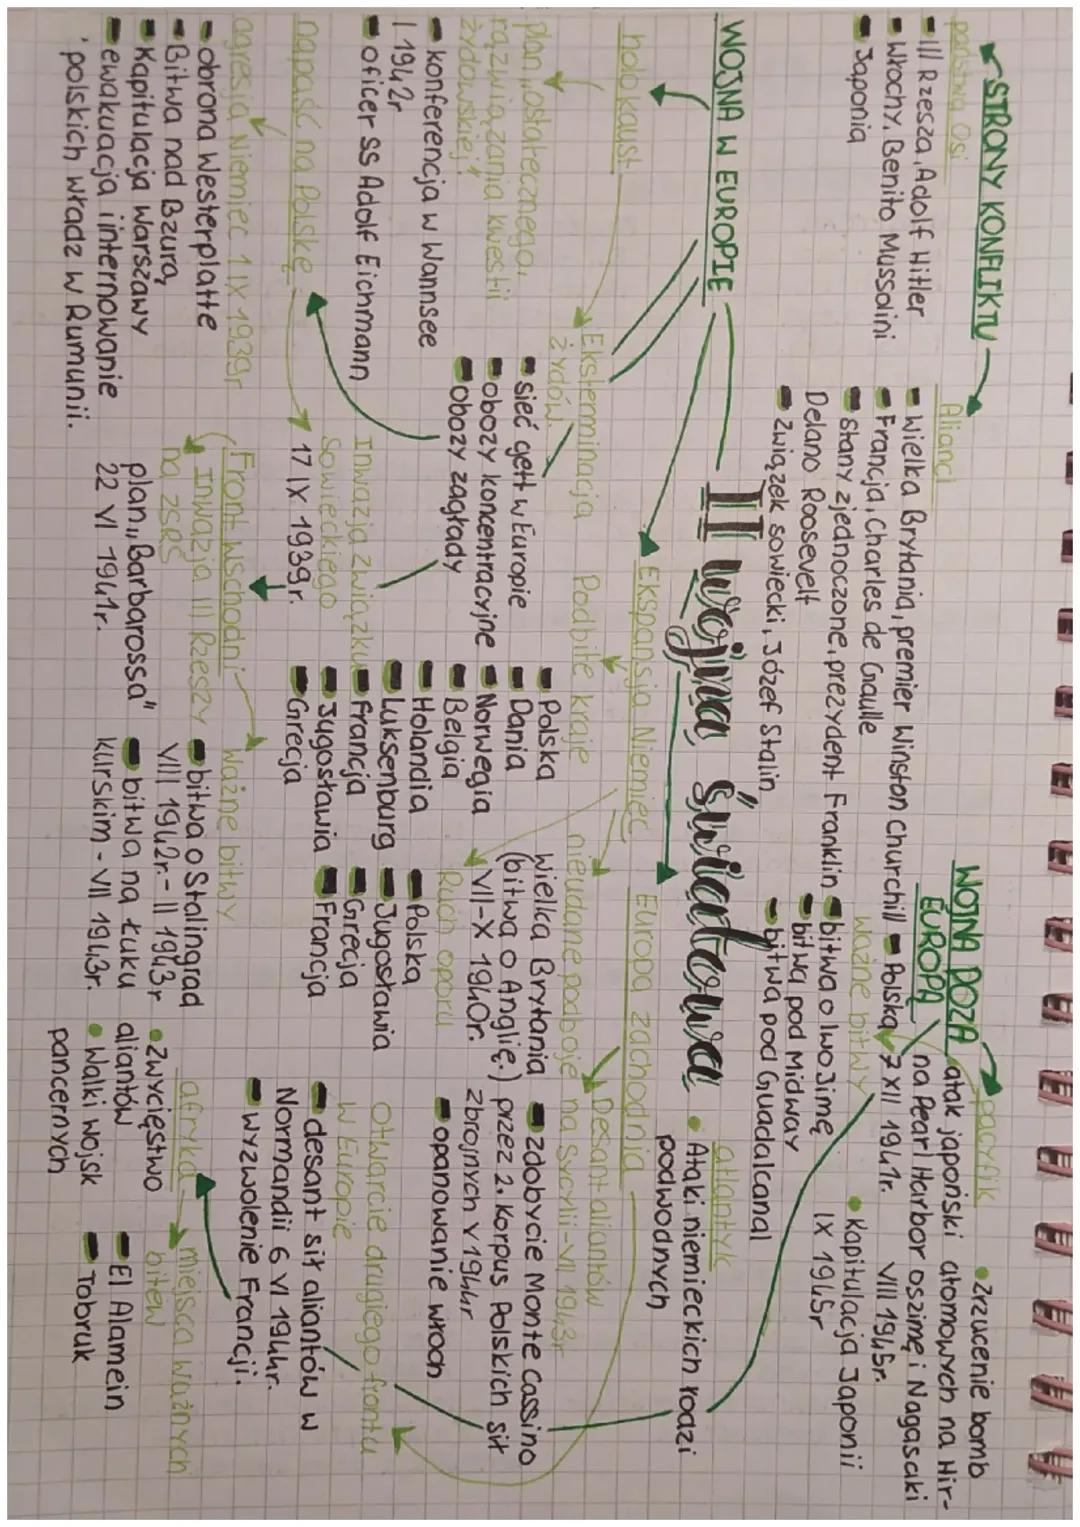 STRONY KONFLIKTU
państwa Osi
III Rzesza, Adolf Hitler
Włochy, Benito Mussolini
Japonia
Alianci
Wielka Brytania, premier Winston Churchill
Francja, Charles de Gaulle
Stany zjednoczone, prezydent Franklin
Delano Roosevelt
Związek sowiecki, Józef Stalin
Polska
WOJNA POZA
EUROPĄ
pacyfik
atak japoński
na Pearl Harbor
7 XII 1941r.
zrzucenie bomb
atomowych na Hir-
oszimę i Nagasaki
VIII 1945r.
Kapitulacja Japonii
IX 1945r
Ważne bitwy
bitwa o Iwo Jimę
bitwa pod Midway
bitwa pod Guadalcanal
atlantyk
Ataki niemieckich łodzi
podwodnych
II wojna światowa
WOJNA W EUROPIE
holokaust
plan „ostatecznego
rozwiązania kwestii
żydowskiej"
konferencja w Wannsee
I 1942r
oficer SS Adolf Eichmann
Eksterminacja
żydów
sieć gett w Europie
obozy koncentracyjne
Obozy zagłady
Ekspansja Niemiec
Podbite kraje
Polska
Dania
Norwegia
Belgia
Holandia
Luksenburg
Francja
Jugosławia
Grecja
nieudane podboje
Wielka Brytania
(bitwa o Anglię)
VII-X 1940r.
Ruch oporu
Polska
Jugosławia
Grecja
Francja
Europa zachodnia
Desant aliantów
na Sycylii - VI 1943r
zdobycie Monte Cassino
przez 2. Korpus Polskich sił
zbrojnych V 1944r
opanowanie włoch
Otwarcie drugiego frontu
w Europie
desant sił aliantów w
Normandii 6 VI 1944r.
Wyzwolenie Francji.
napaść na Polskę
agresja Niemiec 1 IX 1939r
obrona Westerplatte
Bitwa nad Bzurą
Kapitulacja Warszawy
ewakuacja internowanie
polskich władz w Rumunii.
Inwazja Związku
Sowieckiego
17 IX 1939r.
Front Wschodni
Inwazja III Rzeszy
na ZSRS
plan „Barbarossa"
22 VI 1941r.
Ważne bitwy
bitwa o Stalingrad
VIII 1942r.- II 1943r
bitwa na Łuku
kurskim - VII 1943r.
afryka
zwycięstwo
aliantów
Walki wojsk
pancernych
miejsca ważnych
bitew
El Alamein
Tobruk